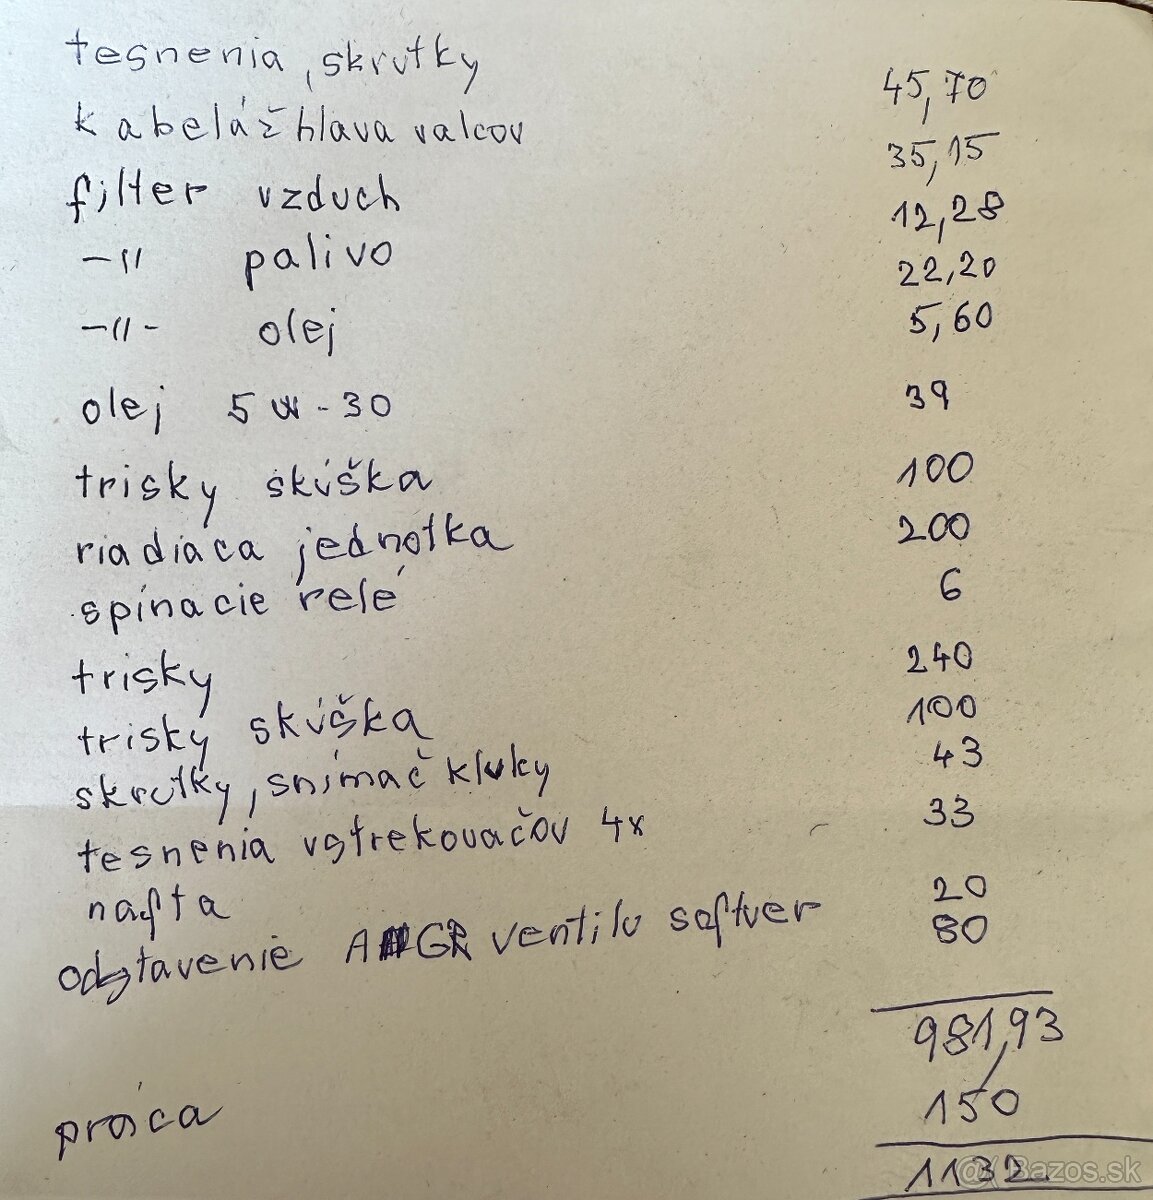 tesnenia, skrutky 45,70
kabeláž hlava valcov 35,15
filter vzduch 12,28
-"- palivo 22,20
-"- olej 5,60
olej 5w-30 39
trisky skúška 100
riadiaca jednotka 200
spínacie relé 6
trisky 240
trisky skúška 100
skrutky, snímač kluky 43
tesnenia vstrekovačov 4x 33
nafta 20
odstavenie AGR ventilu softver 80
981,93
práca 150
1132
Bazos.sk